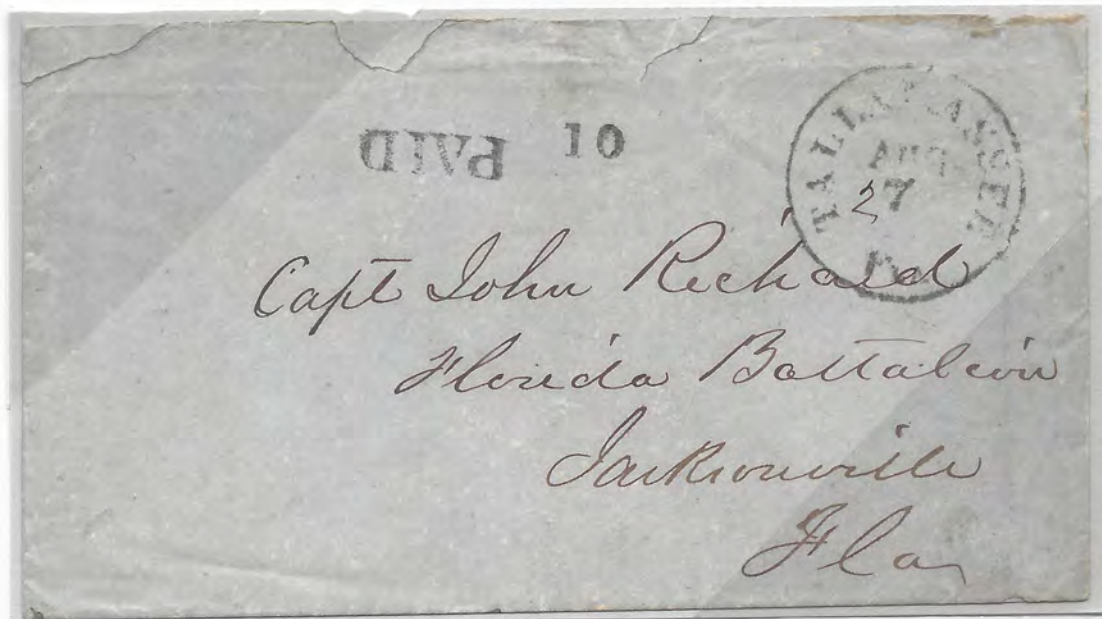 PAID 10
TALLAHASSEE
AUG
7
2
Fla
Capt John Richard
Florida Battalion
Jacksonville
Fla